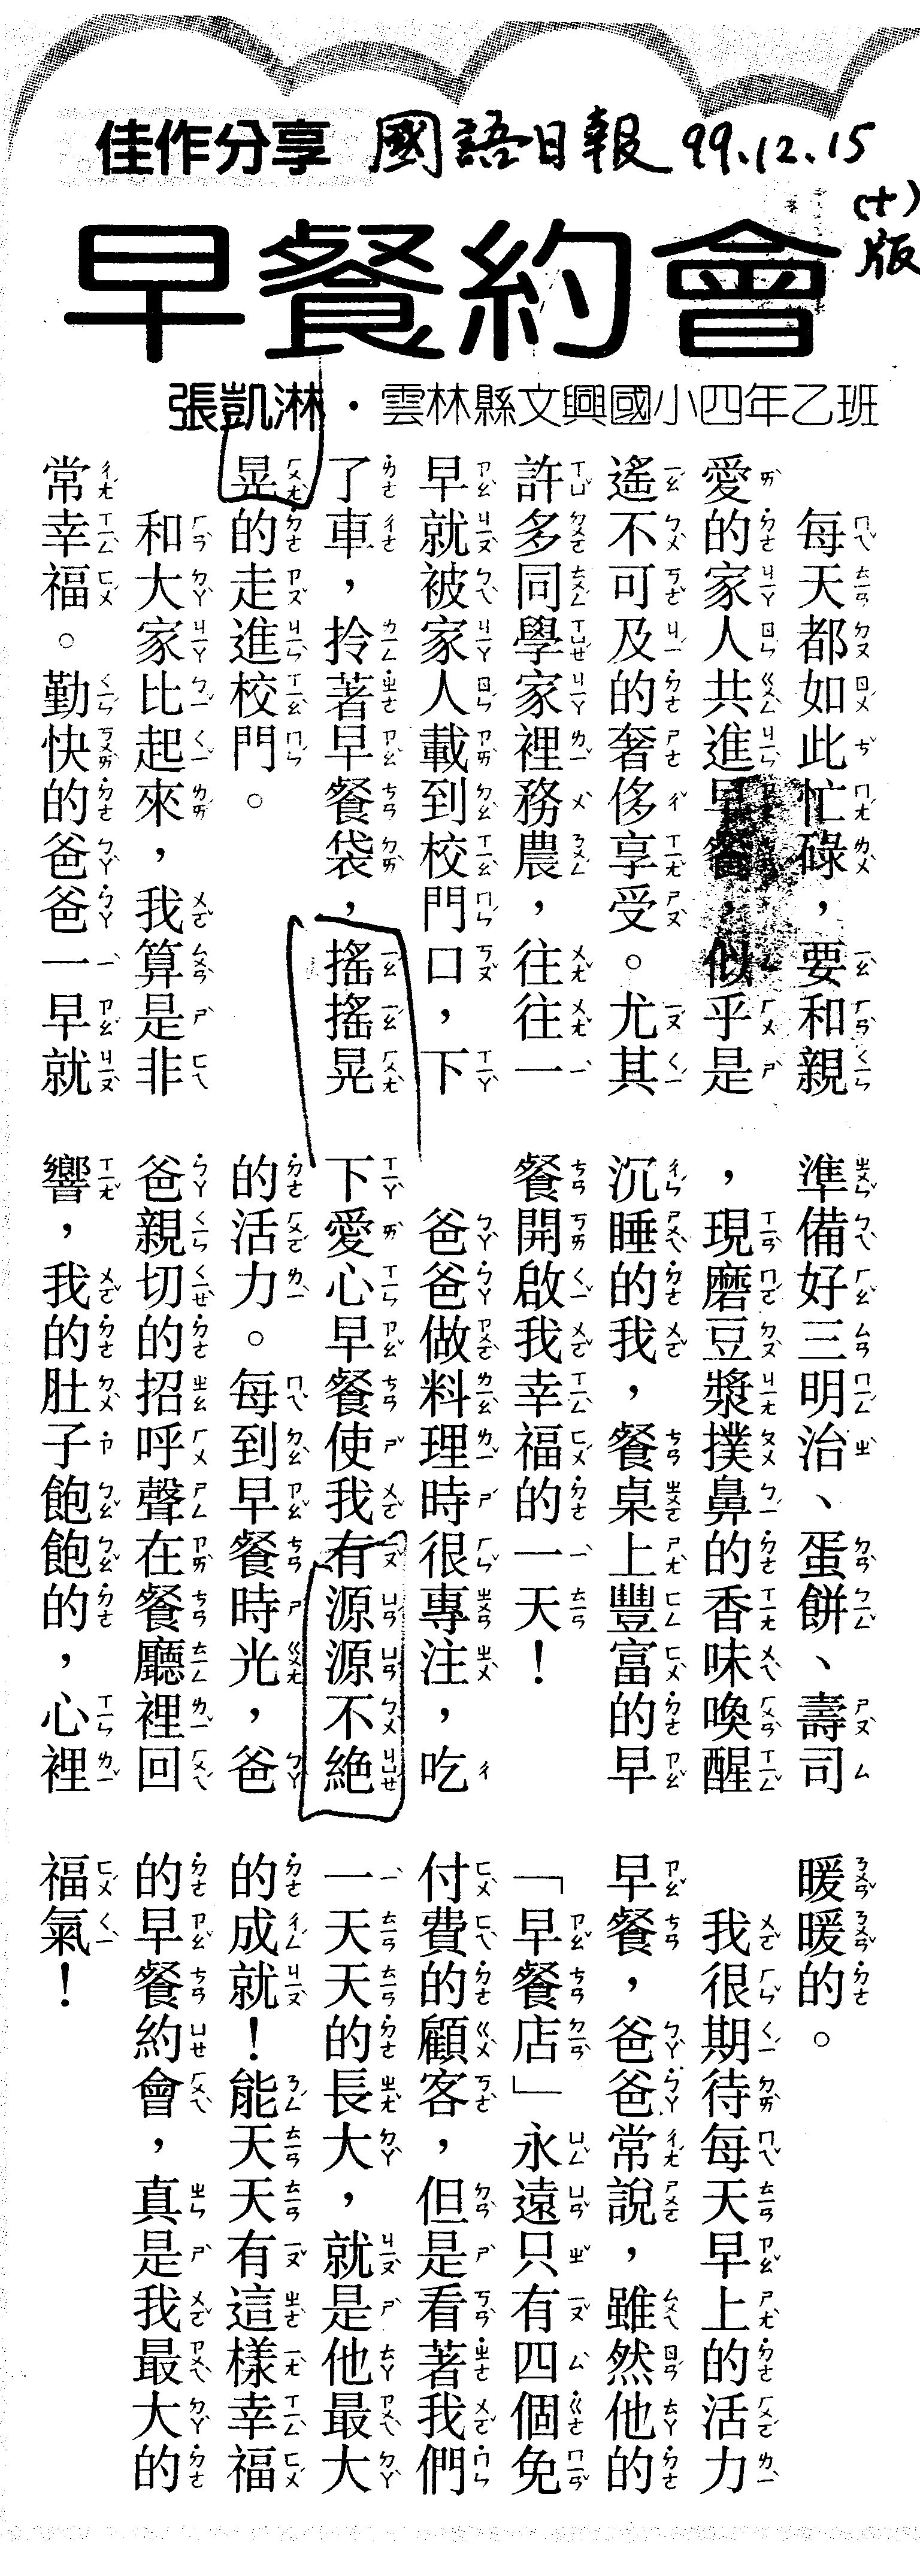 佳作分享 國語日報 99.12.15
(十)版
早餐約會
張凱淋・雲林縣文興國小四年乙班
每天都如此忙碌，要和親
愛的家人共進早餐，似乎是
遙不可及的奢侈享受。尤其
許多同學家裡務農，往往一
早就被家人載到校門口，下
了車，拎著早餐袋，搖搖晃
晃的走進校門。
和大家比起來，我算是非
常幸福。勤快的爸爸一早就
準備好三明治、蛋餅、壽司
，現磨豆漿撲鼻的香味喚醒
沉睡的我，餐桌上豐富的早
餐開啟我幸福的一天！
爸爸做料理時很專注，吃
下愛心早餐使我有源源不絕
的活力。每到早餐時光，爸
爸親切的招呼聲在餐廳裡回
響，我的肚子飽飽的，心裡
暖暖的。
我很期待每天早上的活力
早餐，爸爸常說，雖然他的
「早餐店」永遠只有四個免
付費的顧客，但是看著我們
一天天的長大，就是他最大
的成就！能天天有這樣幸福
的早餐約會，真是我最大的
福氣！